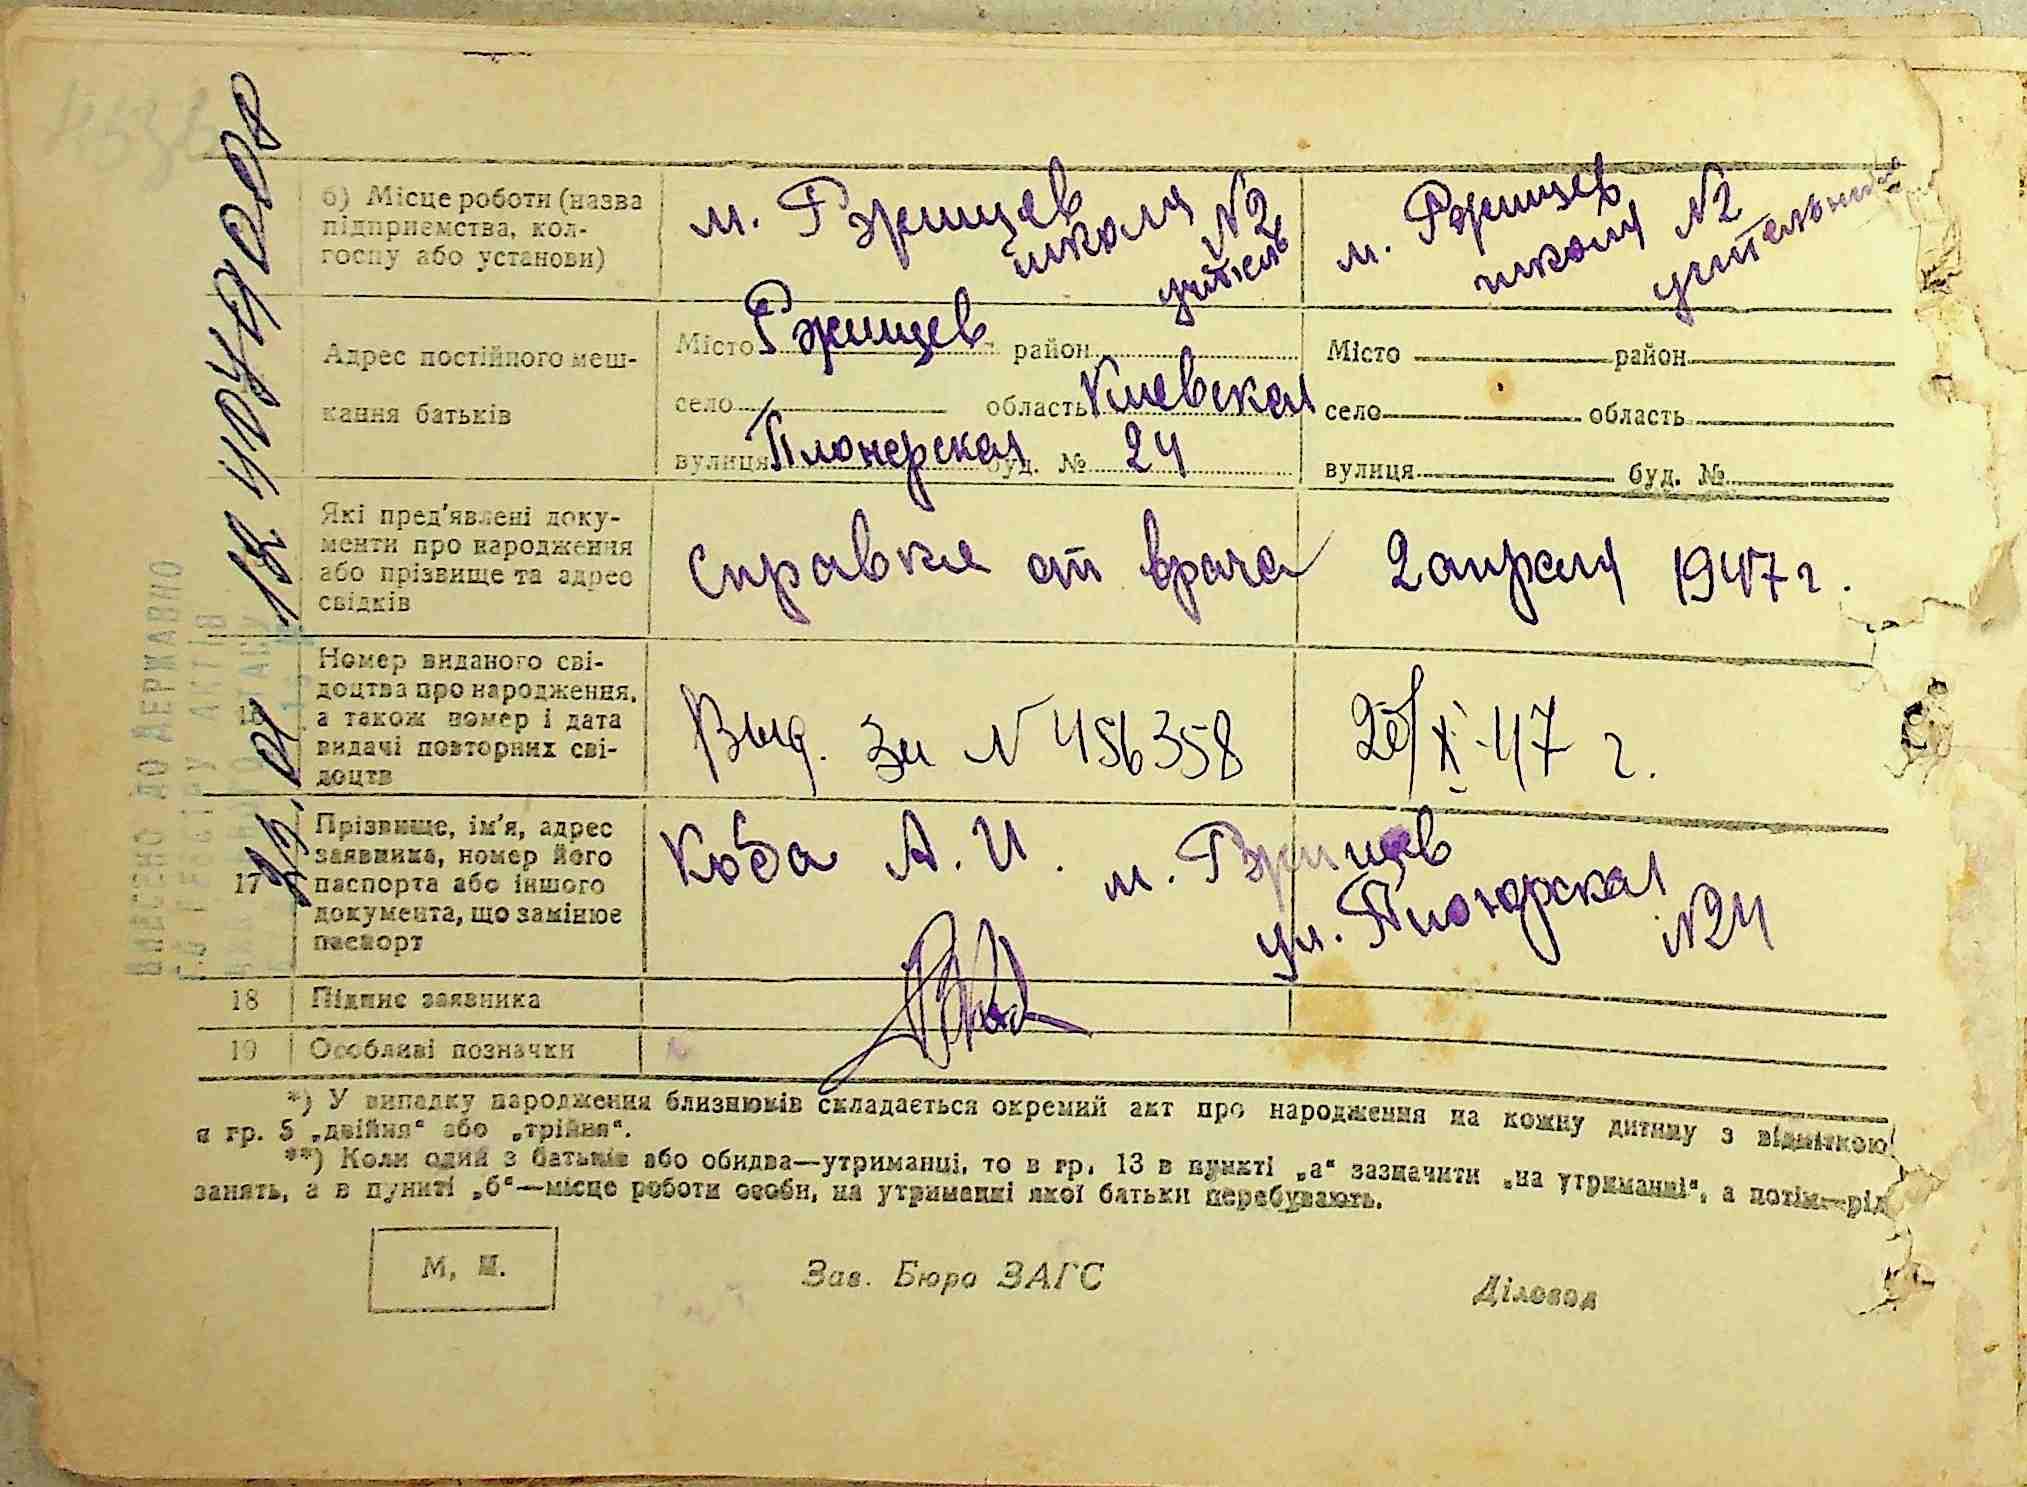 б) Місце роботи (назва
підприємства, кол-
госпу або установи)
м. Ржищев
школа №2
учитель
м. Ржищев
школа №2
учительница
Адрес постійного меш-
кання батьків
Місто Ржищев район
село область Киевская
вулиця Пионерская буд. № 24
Місто район
село область
вулиця буд. №
Які пред'явлені доку-
менти про народження
або прізвище та адрес
свідків
Справка от врача 2 апреля 1947 г.
16
Номер виданого сві-
доцтва про народження,
а також номер і дата
видачі повторних сві-
доцтв
Выд. за № 456358 /X-47 г.
17
Прізвище, ім'я, адрес
заявника, номер його
паспорта або іншого
документа, що замінює
паспорт
Коба А. И. м. Ржищев
ул. Пионерская
№24
18 Підпис заявника
19 Особливі позначки
*) У випадку народження близнюків складається окремий акт про народження на кожну дитину з відміткою
в гр. 5 „двійня“ або „трійня“.
**) Коли один з батьків або обидва—утриманці, то в гр. 13 в пункті „а“ зазначити „на утриманні“, а потім—рід
занять, а в пункті „б“—місце роботи особи, на утриманні якої батьки перебувають.
М. П.
Зав. Бюро ЗАГС
Діловод
ВНЕСЕНО ДО ДЕРЖАВНО
ГО РЕЄСТРУ АКТІВ